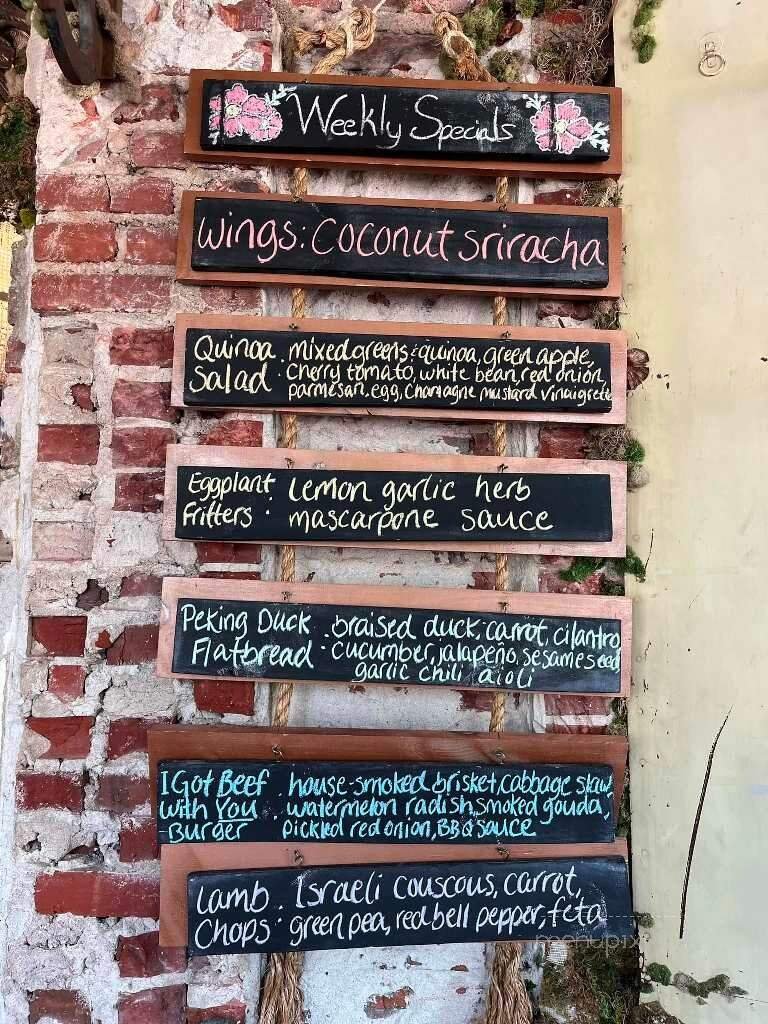 Weekly Specials
Wings: Coconut Sriracha
Quinoa Salad : mixed greens & quinoa, green apple,
cherry tomato, white bean, red onion,
parmesan, egg, Champagne mustard vinaigrette
Eggplant Fritters : lemon garlic herb
mascarpone sauce
Peking Duck Flatbread : braised duck, carrot, cilantro,
cucumber, jalapeño, sesame seed
garlic chili aioli
I Got Beef With You -Burger : house-smoked brisket, cabbage slaw,
watermelon radish, smoked gouda,
pickled red onion, BBQ sauce
Lamb Chops : Israeli couscous, carrot,
green pea, red bell pepper, feta
menupix